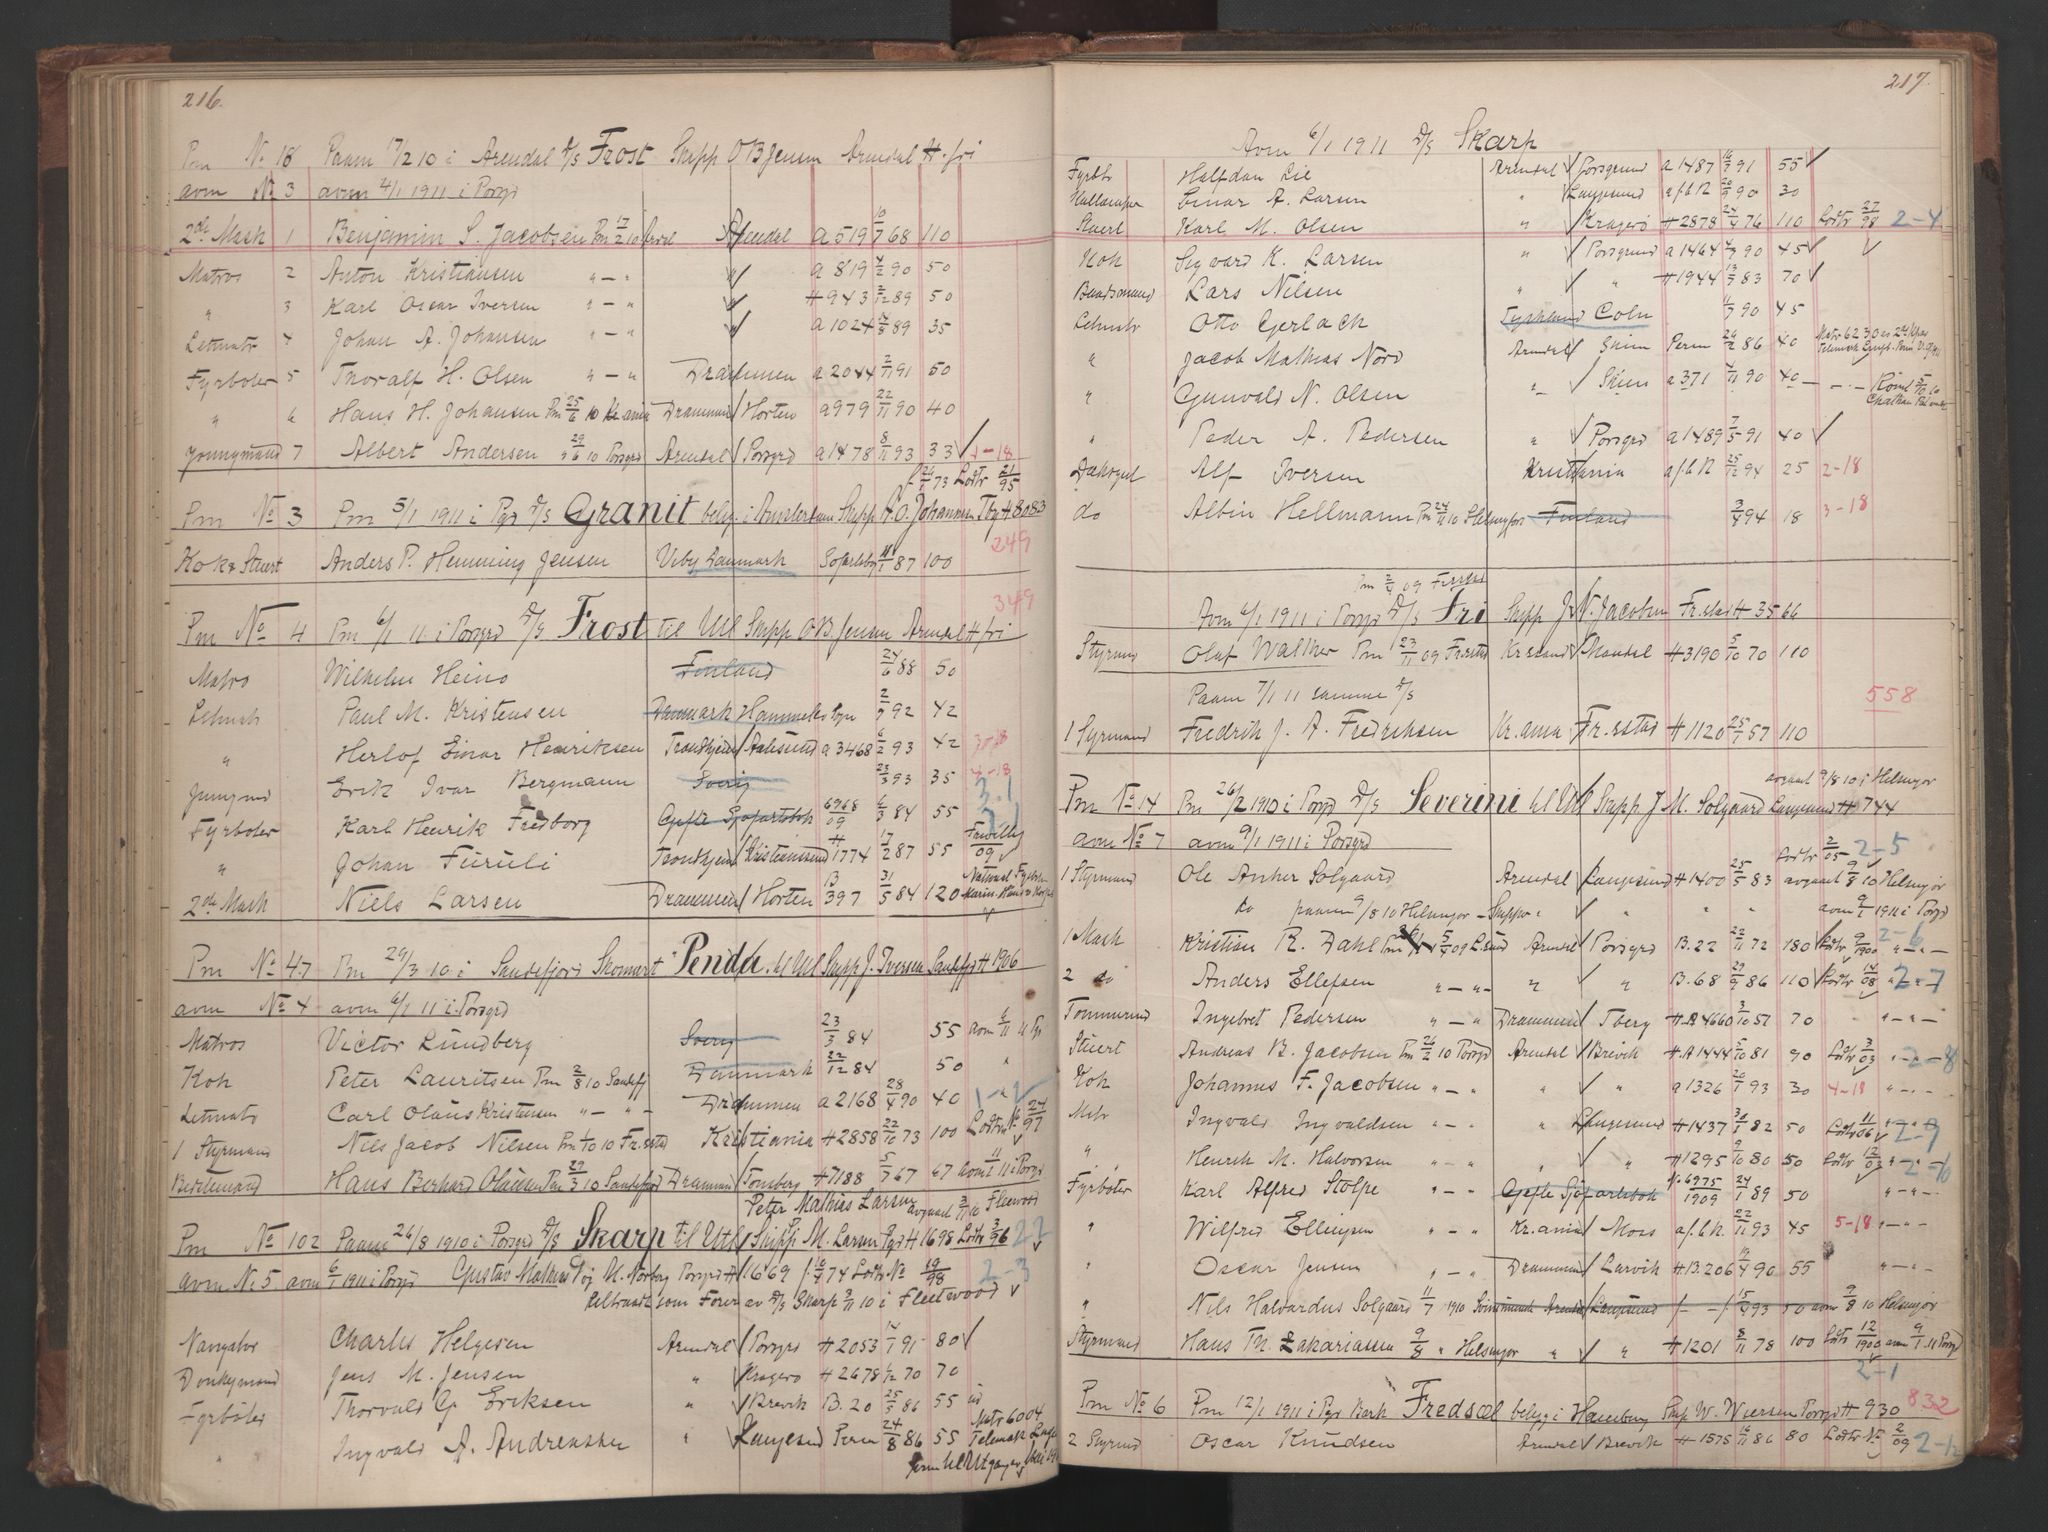 216.
Pm No 18 Paam 17/2 10 i Arendal D/S Frost Skipp O B Jensen Arendal H. fri
avm No 3 avm 4/1 1911 i Porsgrd
2de Mask 1 Benjamin S. Jacobsen Pm 17/2 10 Arendal a 519 10/7 68 110
Matros 2 Anton Kristiansen " - " " a 819 4/2 90 50
" 3 Karl Oscar Iversen " - " " H 943 2/12 89 50
Letmatr 4 Johan A. Johansen " - " " a 1024 14/8 89 35
Fyrböter 5 Thoralf H. Olsen " - " Drammen a 2044 2/11 91 50
" 6 Hans H. Johansen Pm 25/6 10 Kr.ania Drammen / Horten a 979 22/11 90 40
Jonngmand 7 Albert Andersen 29/6 10 Porsgrd Arendal / Porsgrd a 1478 8/11 93 33 1-18
f. 26/1 73 Lodtr 21/95
Pm No 3 Pm 5/1 1911 i Pgr D/S Granit belig. i Amsterdam Skipp A. O. Johannesen Tbg H 8083
249
Kok & Stuert Anders P. Hemming Jensen Viby Danmark Sofartsbog 11/1 87 100
349
Pm No 4 Pm 6/1 11 i Porsgrd D/S Frost til Utl Skipp O B Jensen Arendal H fri
Matro Wilhelm Heino Finland 24/6 88 50
Letmatr Paul M. Kristensen Danmark Hammels Byn 2/9 92 42
" Herlof Einar Henriksen Trondhjem / Aalesund a 3468 6/2 93 42 3-18
Jungmd Erik Ivar Bergmann Sverig 23/3 93 35 4-18
Fyrböter Karl Henrik Fredborg Gefle Sjöfartsbok 6968/09 6/3 84 55 2-1
" Johan Furuli Trondhjem / Kristiansund H 1774 17/2 87 55 Frivillig 09
2de Mask Niels Larsen Drammen / Horten B 397 31/5 84 120
Pm No 47 Pm 29/3 10 i Sandefjord Skonnert "Penda" til Utl Skipp J. Iversen Sandefj H 1906
avm No 4 avm 6/1 11 i Porsgrd
Matros Victor Lundberg Sverig 23/3 84 55 avm 6/11
Kok Peter Lauritsen Pm 2/8 10 Sandefj Danmark 22/12 84 50 "
Letmatr Carl Olaus Kristensen " - " - Drammen a 2168 28/4 90 40 1-2
1 Styrmand Nils Jacob Nilsen Pm 1/10 10 Fr.stad Kristiania H 2858 22/10 73 100 Lodtr No 24/97
Bestemand Hans Berhard Olausen Pm 29/3 10 Sandefjord Drammen / Tonsberg H 7188 5/7 67 67 avm 11/1 11 i Porsgrd
Peter Mathias Larsen avgaaet 3/11 10 Fleewood
Pm No 102 Paam 26/8 1910 i Porsgrd D/S Skarp til Utl / Skipp M. Larsen Pgr H 1698 Lodtr 3/96 22
avm No 5 avm 6/1 1911 i Porsgrd Gustav Mathias Norberg Porsgrd H 1669 f. 10/7 74 Lodtr No 19/98 2-3
tiltraadt som Forer av D/S Skarp 3/11 10 i Fleetwood
Navigator Charles Helgesen Arendal / Porsgrd H 2053 14/1 91 80
Donkeymand Jens M. Jensen " Kragerö H 2678 1/12 70 70
Fyrböter Thorvald G. Eriksen " Brevik B. 20 25/5 86 55
" Ingvald A. Andreassen " Langesund Perm 24/8 86 55 Matr 6004 Telemark
217.
Avm 6/1 1911 D/S Skarp
Fyrbtr Halfdan Lie Arendal / Porsgrund a 1487 16/3 91 55
Einar A. Larsen " Langesund a.f.b N 20/9 90 30
Stuert Karl M. Olsen " Kragerö H 2878 24/4 76 110 Lodtr 27/98 2-4
Kok Sigvard K. Larsen " Porsgrund a 1464 4/9 90 45
Baadsmand Lars Nilsen " " H 1944 13/3 83 70
Letmatr Otto Gerlach Tyskland Coln 11/9 90 45
" Jacob Mathias Nord Arendal / Skien Perm 26/2 86 40 Matr 6230
" Gunvald N. Olsen " / Skien a 371 4/11 90 40
" Peder A. Pedersen " Porsgrd a 1489 7/5 91 40
Dæksgut Alf Iversen Kristiania a.f.b N 25/12 94 25 2-18
do Albin Hellmann Pm 24/11 10 Helsingfors Finland 3/4 94 18 3-18
Pm 2/4 09 Frstad
Avm 6/1 1911 i Porsgrd D/S Fri Skipp J. N. Jacobsen Fr.stad H 3566
Styrmnd Olaf Walther Pm 23/11 09 Fr.stad Kr.sand / Mandal H 3190 5/10 70 110
Paam 7/1 11 samme D/S 558
1 Styrmand Fredrik J. A. Fredriksen Kr.ania Fr.stad H 1120 25/1 57 110
avgaat 9/8 10 i Helsingör
Pm No 14 Pm 26/2 1910 i Porsgrd D/S Severini til Utl Skipp J. M. Solgaard Langesund H 744
avm No 7 avm 9/1 1911 i Porsgrd
1 Styrmand Ole Anker Solgaard Arendal Langesund H 1400 25/5 83 Lodtr 2/05 2-5 avgaaet 9/8 10 Helsingör
do paam 9/8 10 Helsingör - Skipper " " " avm 9/1 1911 i Porsgrd
1 Mask Kristian R. Dahl Pm 5/4 09 L.sund Arendal / Porsgrd B. 22 22/11 72 180 Lodtr 9/1900 2-6
2 do Anders Ellefsen " - " - " " B. 68 29/9 86 110 Lodtr 14/08 2-7
Tömmermd Ingebret Pedersen " - " Drammen / Tberg H.A 4660 3/10 57 70 " - " -
Stuert Andreas B. Jacobsen Pm 26/2 10 Porsgrd Arendal / Brevik H.A 1444 5/10 81 90 Lodtr 3/03 2-8
Kok Johannes F. Jacobsen " - " " " a 1326 20/1 93 30 4-18 " - " -
Matr Ingvald Ingvaldsen " - " " Langesund H 1437 30/1 82 50 Lodtr 11/06 2-9
" Henrik M. Halvorsen " - " " " H 1295 9/10 80 50 Lodtr 12/03 2-10
Fyrböter Karl Alfred Stolpe " - " Gefle Sjöfartsbok No 6975/1909 24/1 89 50 " - " -
" Wilfred Ellingsen " - " Kr.ania / Moss a.f.b.N. 22/11 93 45 5-18 " - " -
" Oscar Jensen " - " Drammen / Larvik H B. 206 19/4 90 55 " - " -
" Nils Halvardus Solgaard 11/7 1910 Arendal / Langesund 15/4 93 50 avm 9/8 10 Helsingör
Styrmand Hans Th. Zakariassen 9/8 " Helsingör " " H 1201 8/11 78 100 Lodtr 12/1900 avm 9/1 11 Porsgrd
2-1
832
Pm No 6 Pm 12/1 1911 i Pgr Bark Fredsæl belig i Hamburg Skip W. Wiersen Porsgrd H 930
2 Styrmd Oscar Knudsen Arendal / Brevik H 1575 16/11 86 80 Lodtr No 2/09 2-12